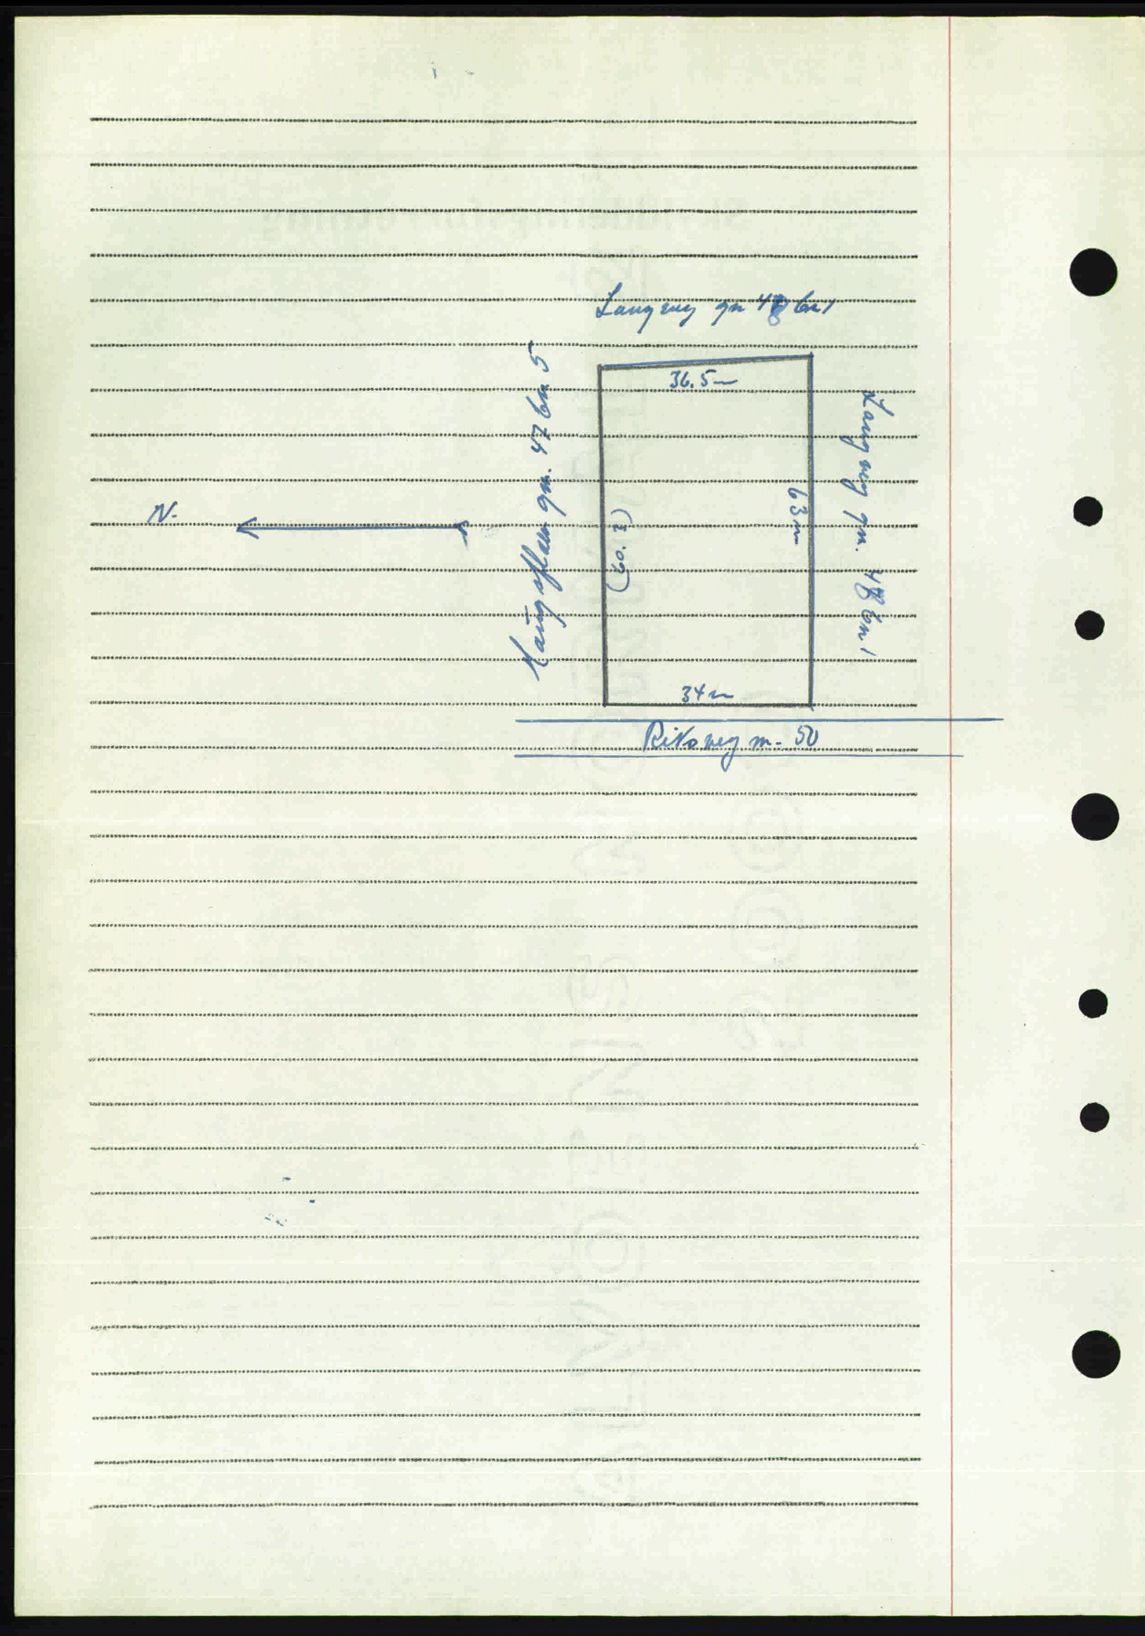 Langeng gn 48 bn 1
36.5 m
gn. 47 bn. 5
Langeng gn. 48 bn 1
63 m
N.
34 m
Riksveg nr. 50